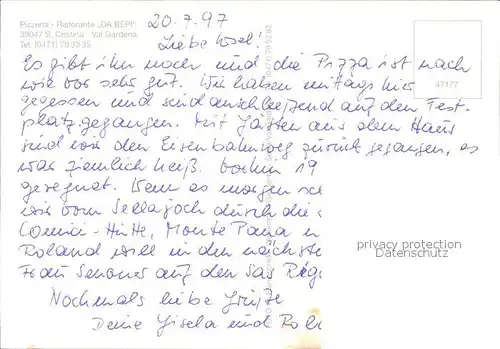 Pizzeria - Ristorante „DA BEPI"
39047 S. Cristina Val Gardena
Tel. (0471) 79 33 35
20.7.97
Liebe
Es gibt ihn noch und die Pizza ist nach
wie vor sehr gut. Wir haben mittags hier
gegessen und sind anschließend auf den Fest-
platz gegangen. Mit Gästen aus dem Haus
sind wir den Eisenbahnweg zurück gegangen, es
war ziemlich heiß. 19
geregnet. Wenn es morgen
wir vom Sellajoch durch die
Comici-Hütte, Monte Pana
Roland will in den nächste
Frau auf den Sas Rig
Nochmals liebe Grüße
Deine Gisela und Rol
47177
privacy protection
Datenschutz